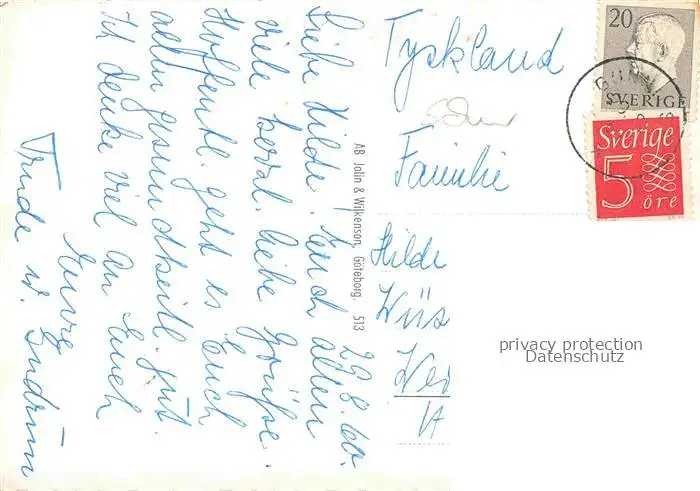 29.8.60.
Liebe Hilde! Euch allen
viele herzl. liebe Grüße.
Hoffentl. geht es Euch
allen gesundheitl. gut.
Ich denke viel an Euch
Eure
Trude u. Gudrun
AB Jolin & Wilkenson, Göteborg. 513
Tyskland
Familie
Hilde
Wüs
20
SVERIGE
Sverige
5
öre
privacy protection
Datenschutz